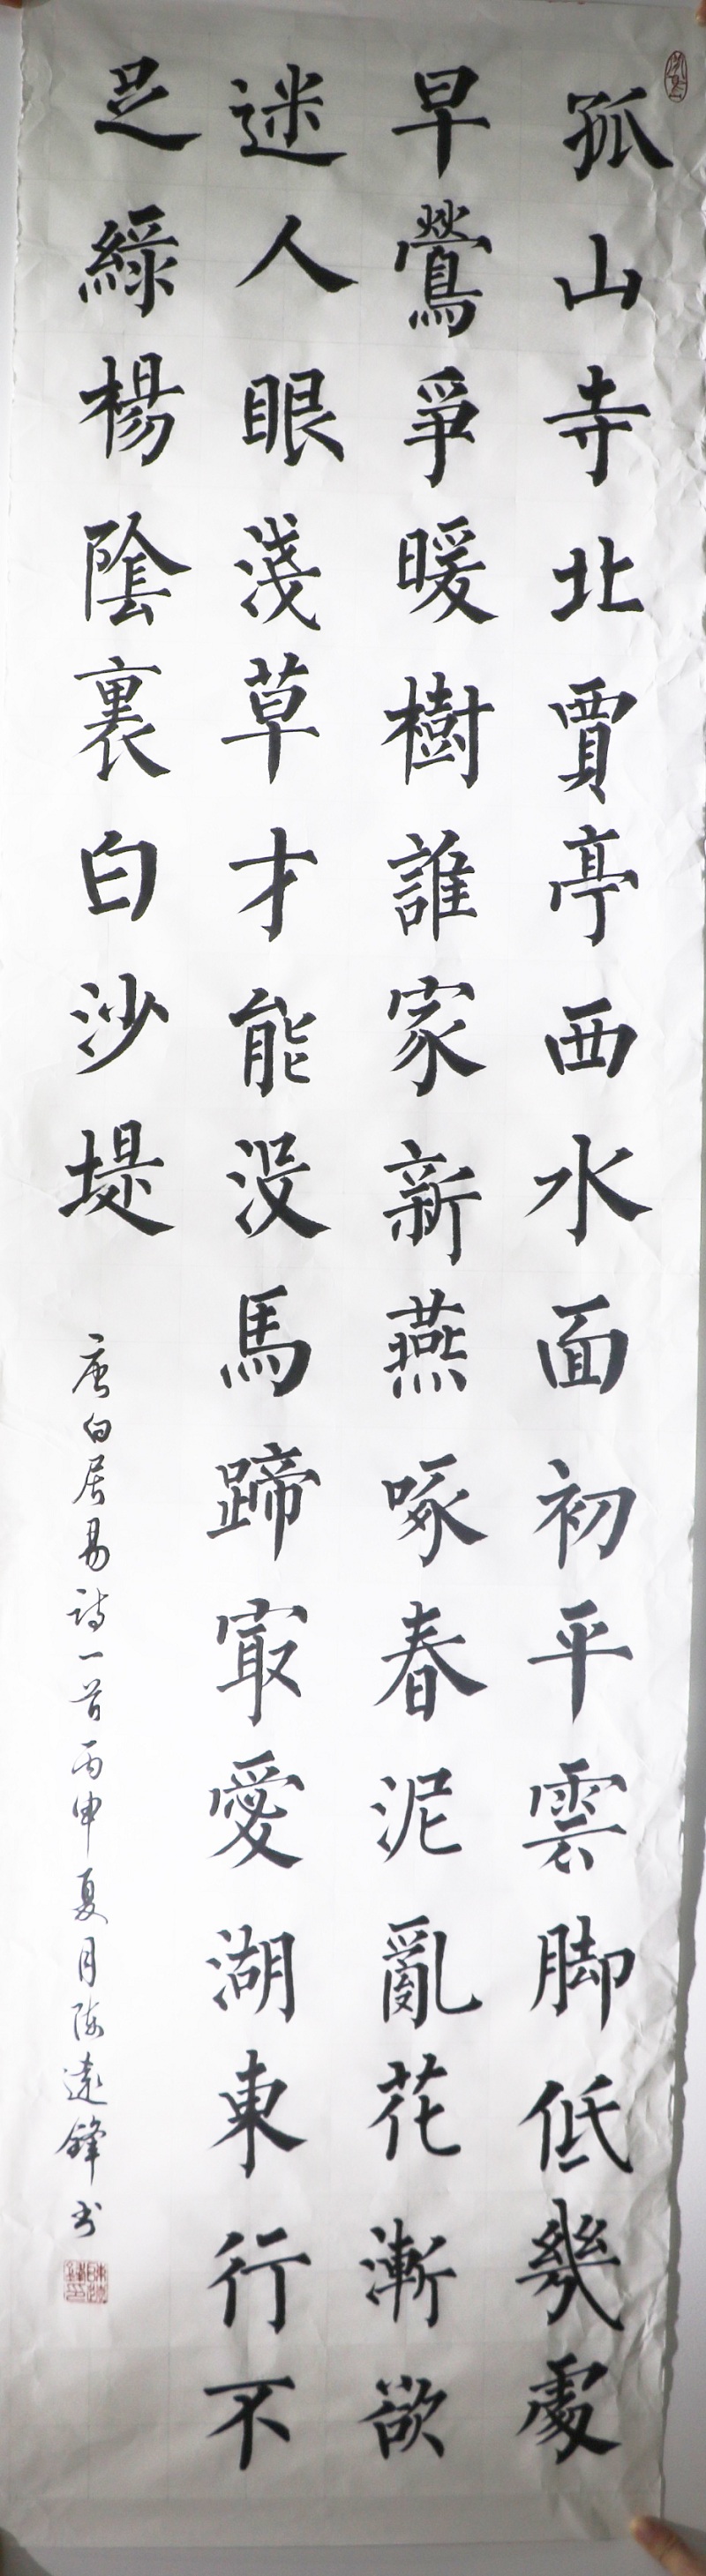 孤山寺北賈亭西水面初平雲脚低幾處
早鶯爭暖樹誰家新燕啄春泥亂花漸欲
迷人眼淺草才能没馬蹄㝡愛湖東行不
足綠楊陰裏白沙堤
唐白居易詩一首丙申夏月陈遠鋒书